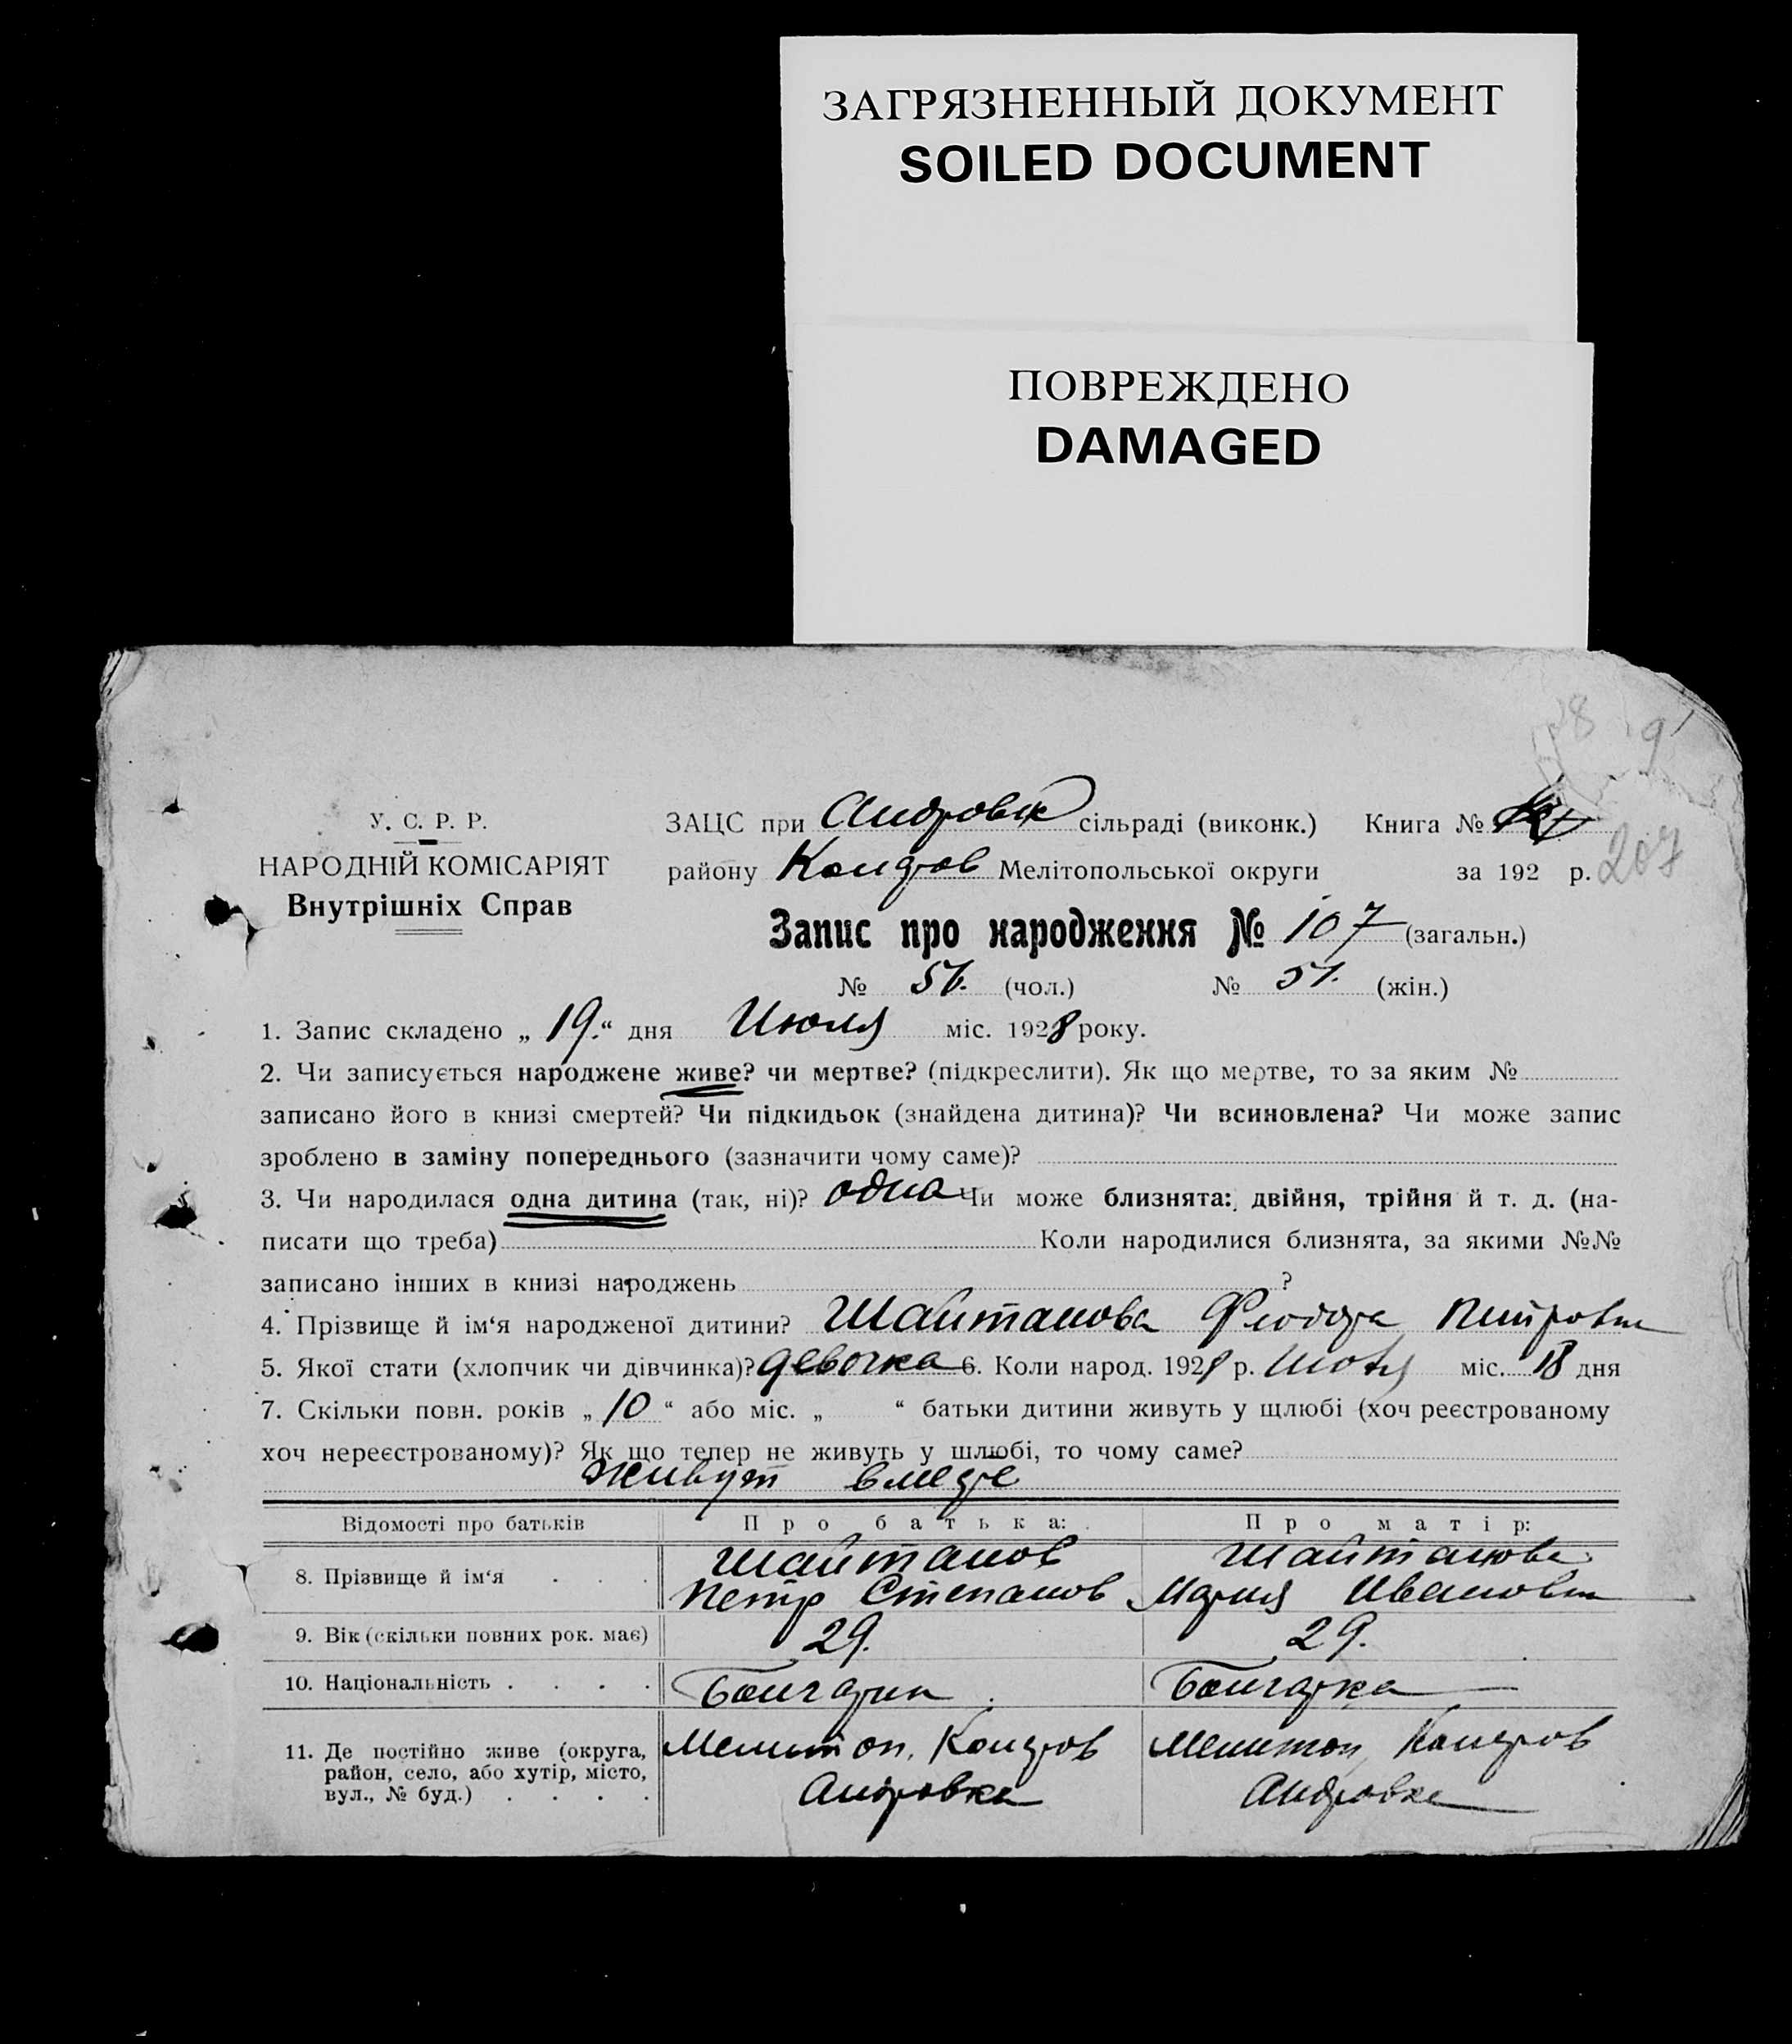 ЗАГРЯЗНЕННЫЙ ДОКУМЕНТ
SOILED DOCUMENT
ПОВРЕЖДЕНО
DAMAGED
28 91
У. С. Р. Р.
НАРОДНІЙ КОМІСАРІЯТ
Внутрішніх Справ
ЗАЦС при Андровск сільраді (виконк.) Книга №
207
району Коларов Мелітопольської округи за 192 р.
Запис про народження № 107 (загальн.)
№ 56. (чол.) № 51. (жін.)
1. Запис складено „ 19. “ дня Июля міс. 1928 року.
2. Чи записується народжене живе? чи мертве? (підкреслити). Як що мертве, то за яким №
записано його в книзі смертей? Чи підкидьок (знайдена дитина)? Чи всиновлена? Чи може запис
зроблено в заміну попереднього (зазначити чому саме)?
3. Чи народилася одна дитина (так, ні)? одна Чи може близнята: двійня, трійня й т. д. (на-
писати що треба) Коли народилися близнята, за якими №№
записано інших в книзі народжень ?
4. Прізвище й ім‘я народженої дитини? Шайтанова Феодора Петровн
5. Якої стати (хлопчик чи дівчинка)? девочка 6. Коли народ. 1928 р. Июля міс. 18 дня
7. Скільки повн. років „ 10 “ або міс. „ “ батьки дитини живуть у щлюбі (хоч реєстрованому
хоч нереєстрованому)? Як що тепер не живуть у шлюбі, то чому саме?
живут вместе
Відомості про батьків Про батька: Про матір:
8. Прізвище й ім‘я . . . Шайтанов Петр Степанов Шайтанова Мария Ивановн
9. Вік (скільки повних рок. має) 29. 29.
10. Національність . . . . Болгарин Болгарка
11. Де постійно живе (округа, район, село, або хутір, місто, вул., № буд.) . . . . Мелитоп. Коларов Андровка Мелитоп Коларов Андровка